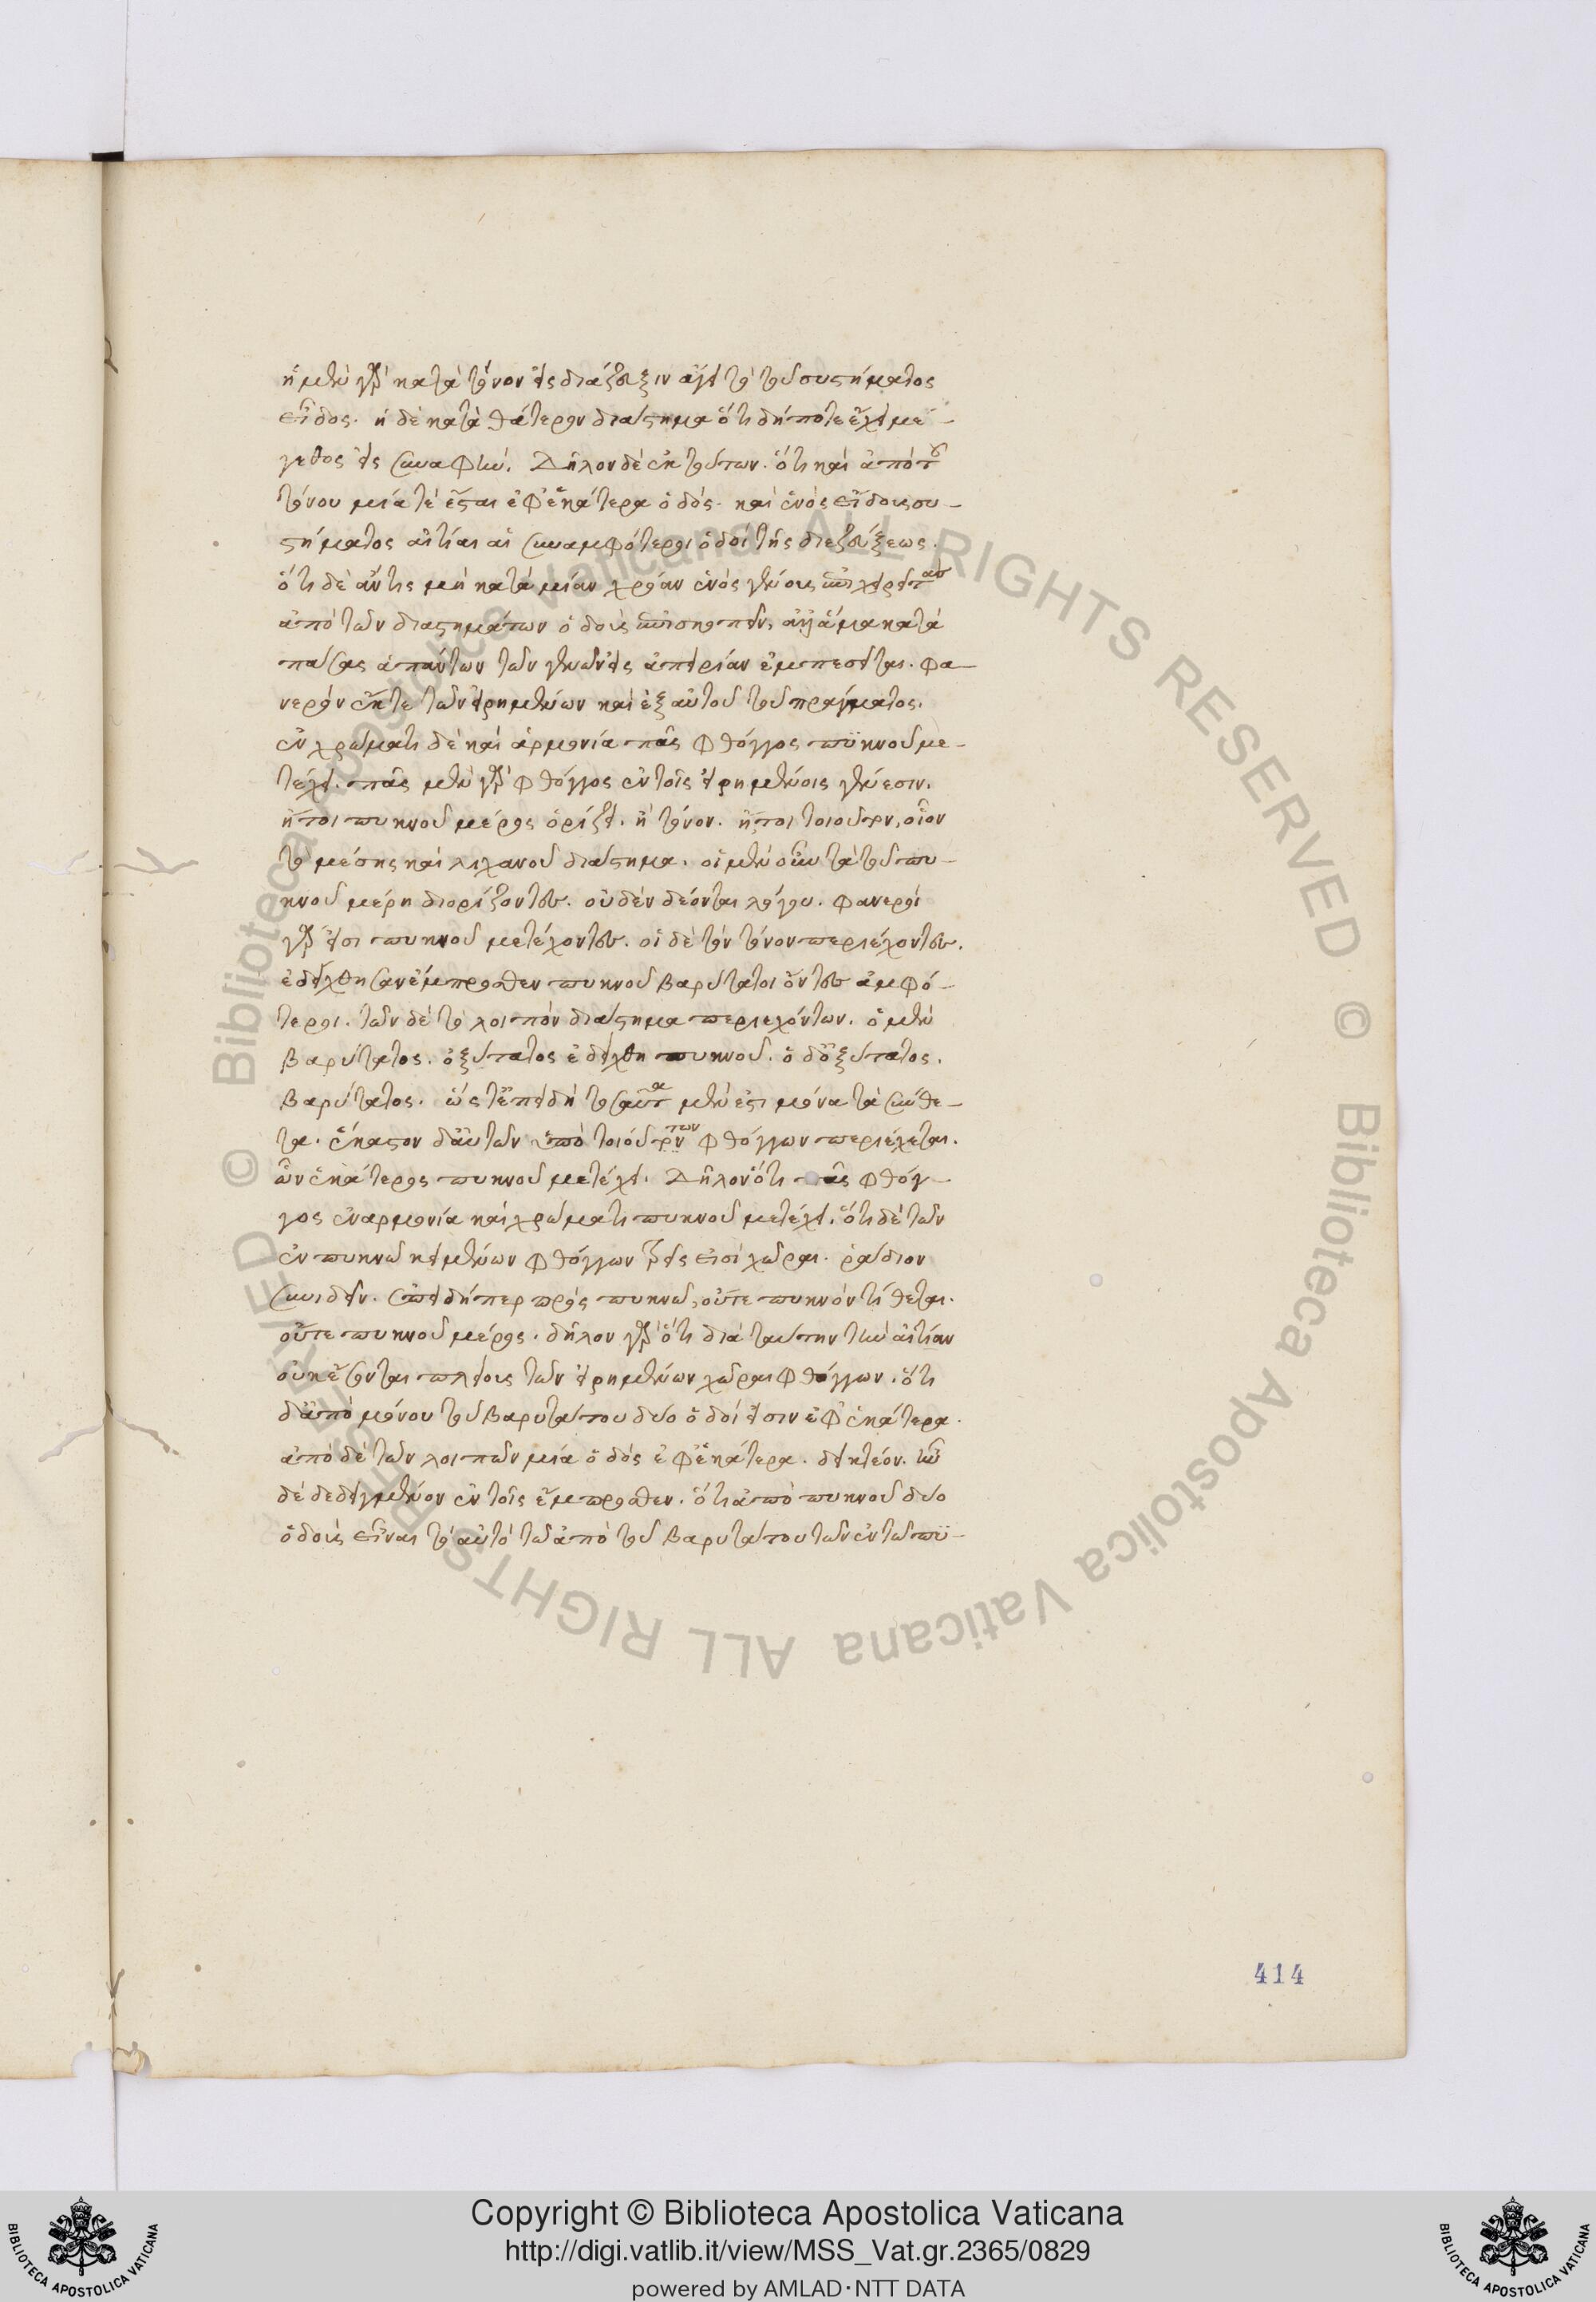 ἡ μὲν γὰρ κατὰ τόνον εἰς διάζευξιν ἄγει τὸ τοῦ συστήματος
εἶδος. ἡ δὲ κατὰ θάτερον διάστημα ὅ τι δήποτε ἔχει μέ-
γεθος εἰς συναφήν. Δῆλον δὲ ἐκ τούτων. ὅτι καὶ ἀπὸ τοῦ
τόνου μία τὲ ἔσται ἐφ' ἑκάτερα ὁδός. καὶ ἑνὸς εἴδους συ-
στήματος αἰτίαι αἱ συναμφότεροι ὁδοὶ τῆς διεζεύξεως.
ὅτι δὲ ἄν τις μὴ κατὰ μίαν χρόαν ἑνὸς γένους ἐπιχειρεῖ τὰσ
ἀπὸ τῶν διαστημάτων ὁδοὺς ἐπισκοπεῖν, ἀλλ' ἅμα κατὰ
πάσας ἁπάντων τῶν γενῶν εἰς ἀπειρίαν ἐμπεσεῖται. φα-
νερὸν ἔκ τε τῶν εἰρημένων καὶ ἐξ αὐτοῦ τοῦ πράγματος.
ἐν χρώματι δὲ καὶ ἁρμονία πᾶς φθόγγος πυκνοῦ με-
τέχει. πᾶς μὲν γὰρ φθόγγος ἐν τοῖς εἰρημένοις γένεσιν.
ἤτοι πυκνοῦ μέρος ὁρίζει. ἢ τόνον. ἤ τοι τοιοῦτον, οἷον
τὸ μέσης καὶ λιχανοῦ διάστημα. οἱ μὲν οὖν τὰ τοῦ πυ-
κνοῦ μέρη διορίζοντες. οὐδὲν δέονται λόγου. φανεροὶ
γὰρ εἰσι πυκνοῦ μετέχοντες. οἱ δὲ τὸν τόνον περιέχοντες.
ἐδείχθησαν ἔμπροσθεν πυκνοῦ βαρύτατοι ὄντες ἀμφό-
τεροι. τῶν δὲ τὸ λοιπὸν διάστημα περιεχόντων. ὁ μὲν
βαρύτατος. ὀξύτατος ἐδείχθη πυκνοῦ. ὁ δ' ὀξύτατος.
βαρύτατος. ὥστ' ἐπειδὴ τοσαῦτα μέν ἐστι μόνα τὰ σύνθε-
τα. ἕκαστον δ' αὐτῶν ὑπὸ τοιούτων φθόγγων περιέχεται.
ὧν ἑκάτερος πυκνοῦ μετέχει. Δῆλον ὅτι πᾶς φθόγ-
γος ἐν ἁρμονία καὶ χρώματι πυκνοῦ μετέχει. ὅτι δὲ τῶν
ἐν πυκνῶ κειμένων φθόγγων τρεῖς εἰσὶ χῶραι. ῥάδιον
συνιδεῖν. ἐπειδήπερ πρὸς πυκνῶ, οὔτε πυκνὸν τίθεται.
οὔτε πυκνοῦ μέρος. δῆλον γὰρ ὅτι διὰ ταύτην τὴν αἰτίαν
οὐκ ἔσονται πλείους τῶν εἰρημένων χῶραι φθόγγων. ὅτι
δ' ἀπὸ μόνου τοῦ βαρυτάτου δύο ὁδοί εἰσιν ἐφ' ἑκάτερα.
ἀπὸ δὲ τῶν λοιπῶν μία ὁδὸς ἐφ' ἑκάτερα. δεικτέον. ἦν
δὲ δεδειγμένον ἐν τοῖς ἔμπροσθεν. ὅτι ἀπὸ πυκνοῦ δύο
ὁδοὺς εἶναι τὸ αὐτὸ τῶ ἀπὸ τοῦ βαρυτάτου τῶν ἐν τῶ πυ-
414
© Biblioteca Apostolica Vaticana ALL RIGHTS RESERVED © Biblioteca Apostolica Vaticana ALL RIGHTS RESERVED
BIBLIOTECA APOSTOLICA VATICANA
Copyright © Biblioteca Apostolica Vaticana
http://digi.vatlib.it/view/MSS_Vat.gr.2365/0829
powered by AMLAD·NTT DATA
BIBLIOTECA APOSTOLICA VATICANA